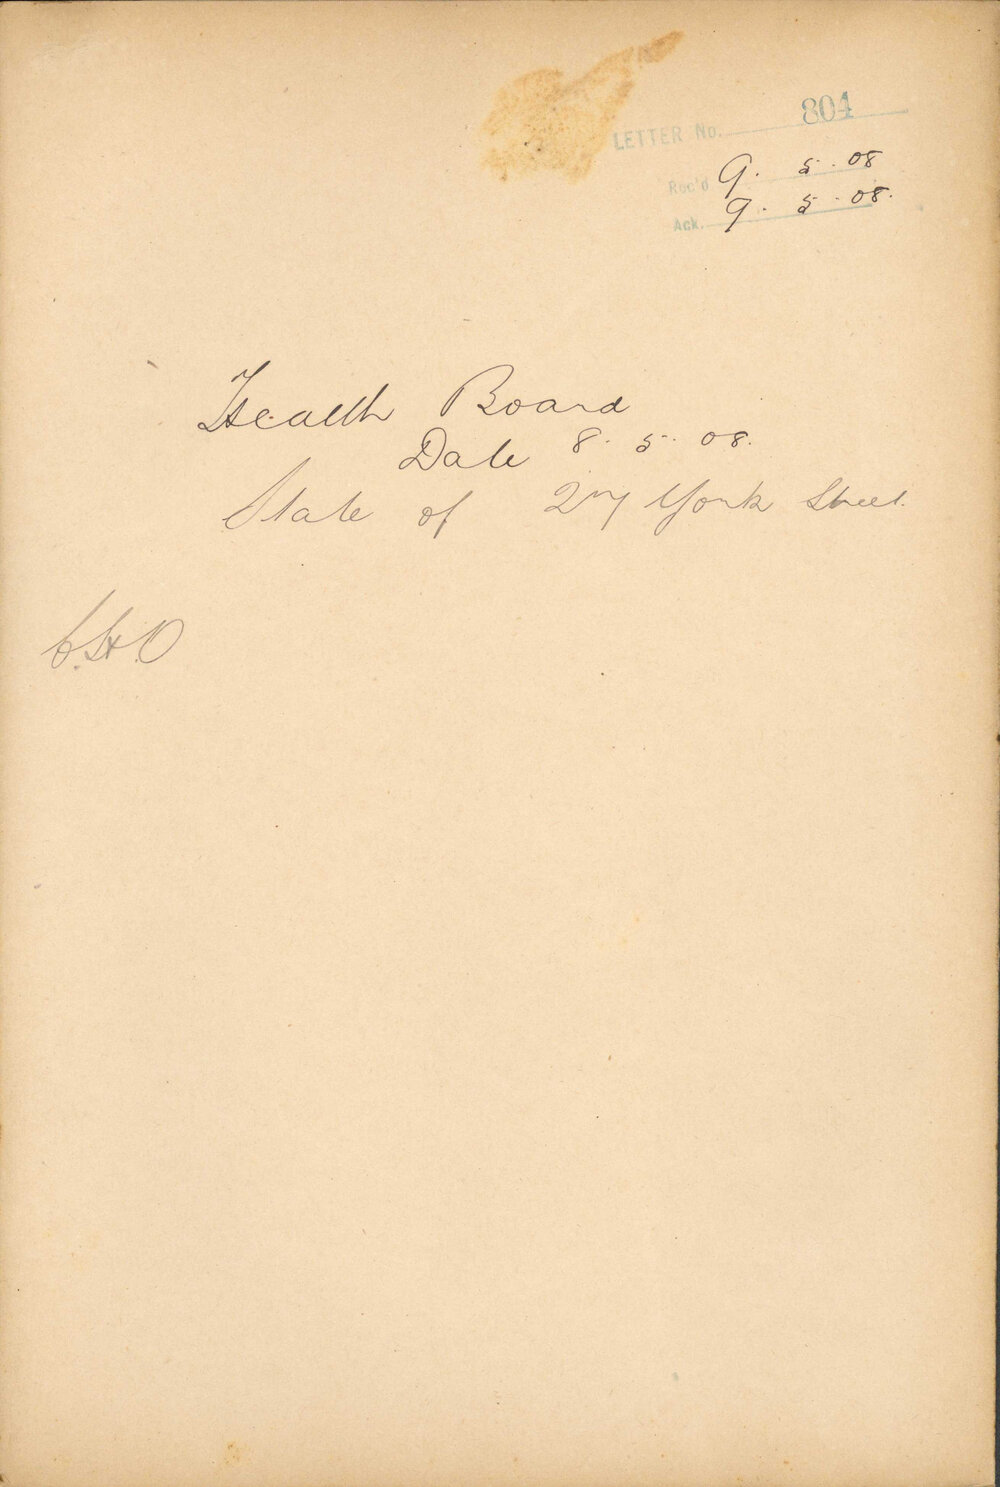 LETTER No. 804
Rec'd 9. 5. 08
Ack. 9. 5. 08.
Health Board
Date 8. 5. 08.
State of York Street.
H.O